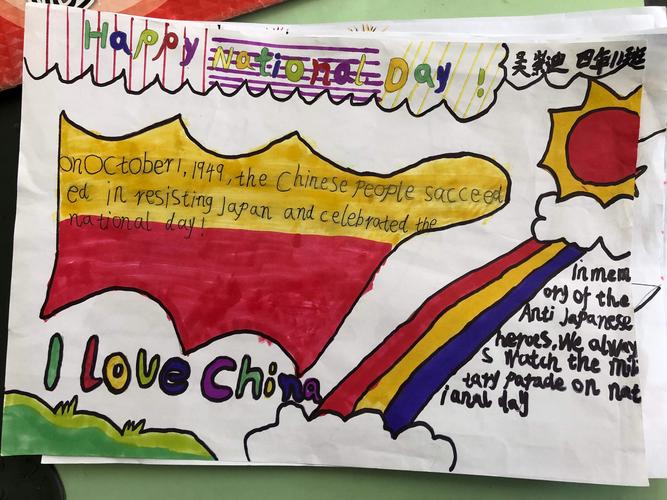 Happy National Day !
吴紫迪 四年11班
onOctober1, 1949, the Chinese people sacceed
ed in resisting Japan and celebrated the
national day!
I Love China
in mem
ory of the
Anti Japanese
heroes. We alway
s watch the mili
tary parade on nat
ianal day